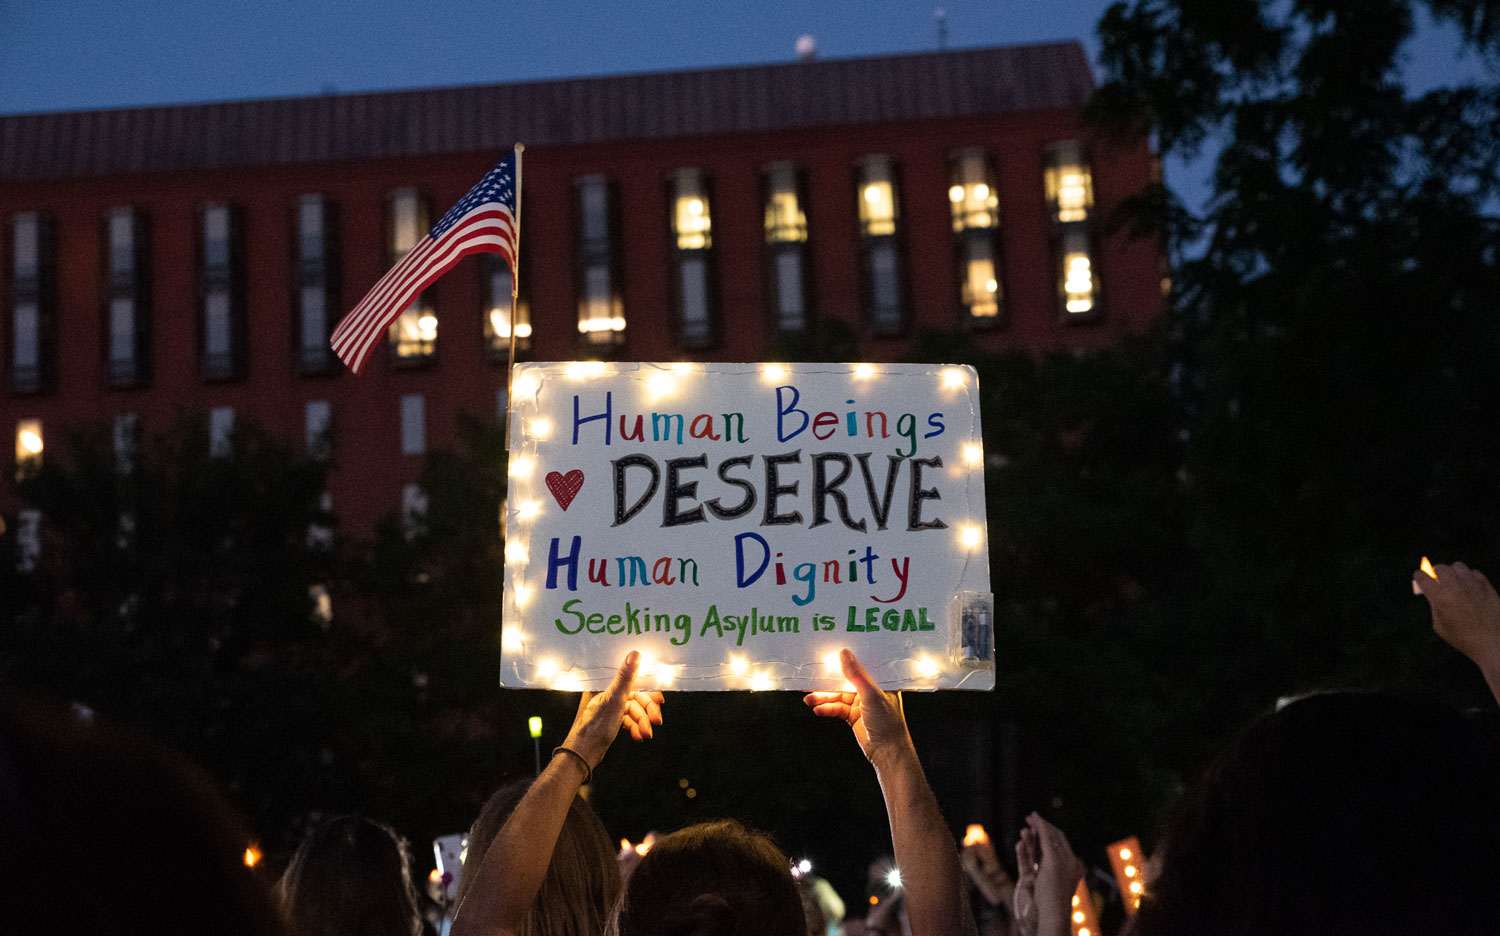 Human Beings
DESERVE
Human Dignity
Seeking Asylum is LEGAL